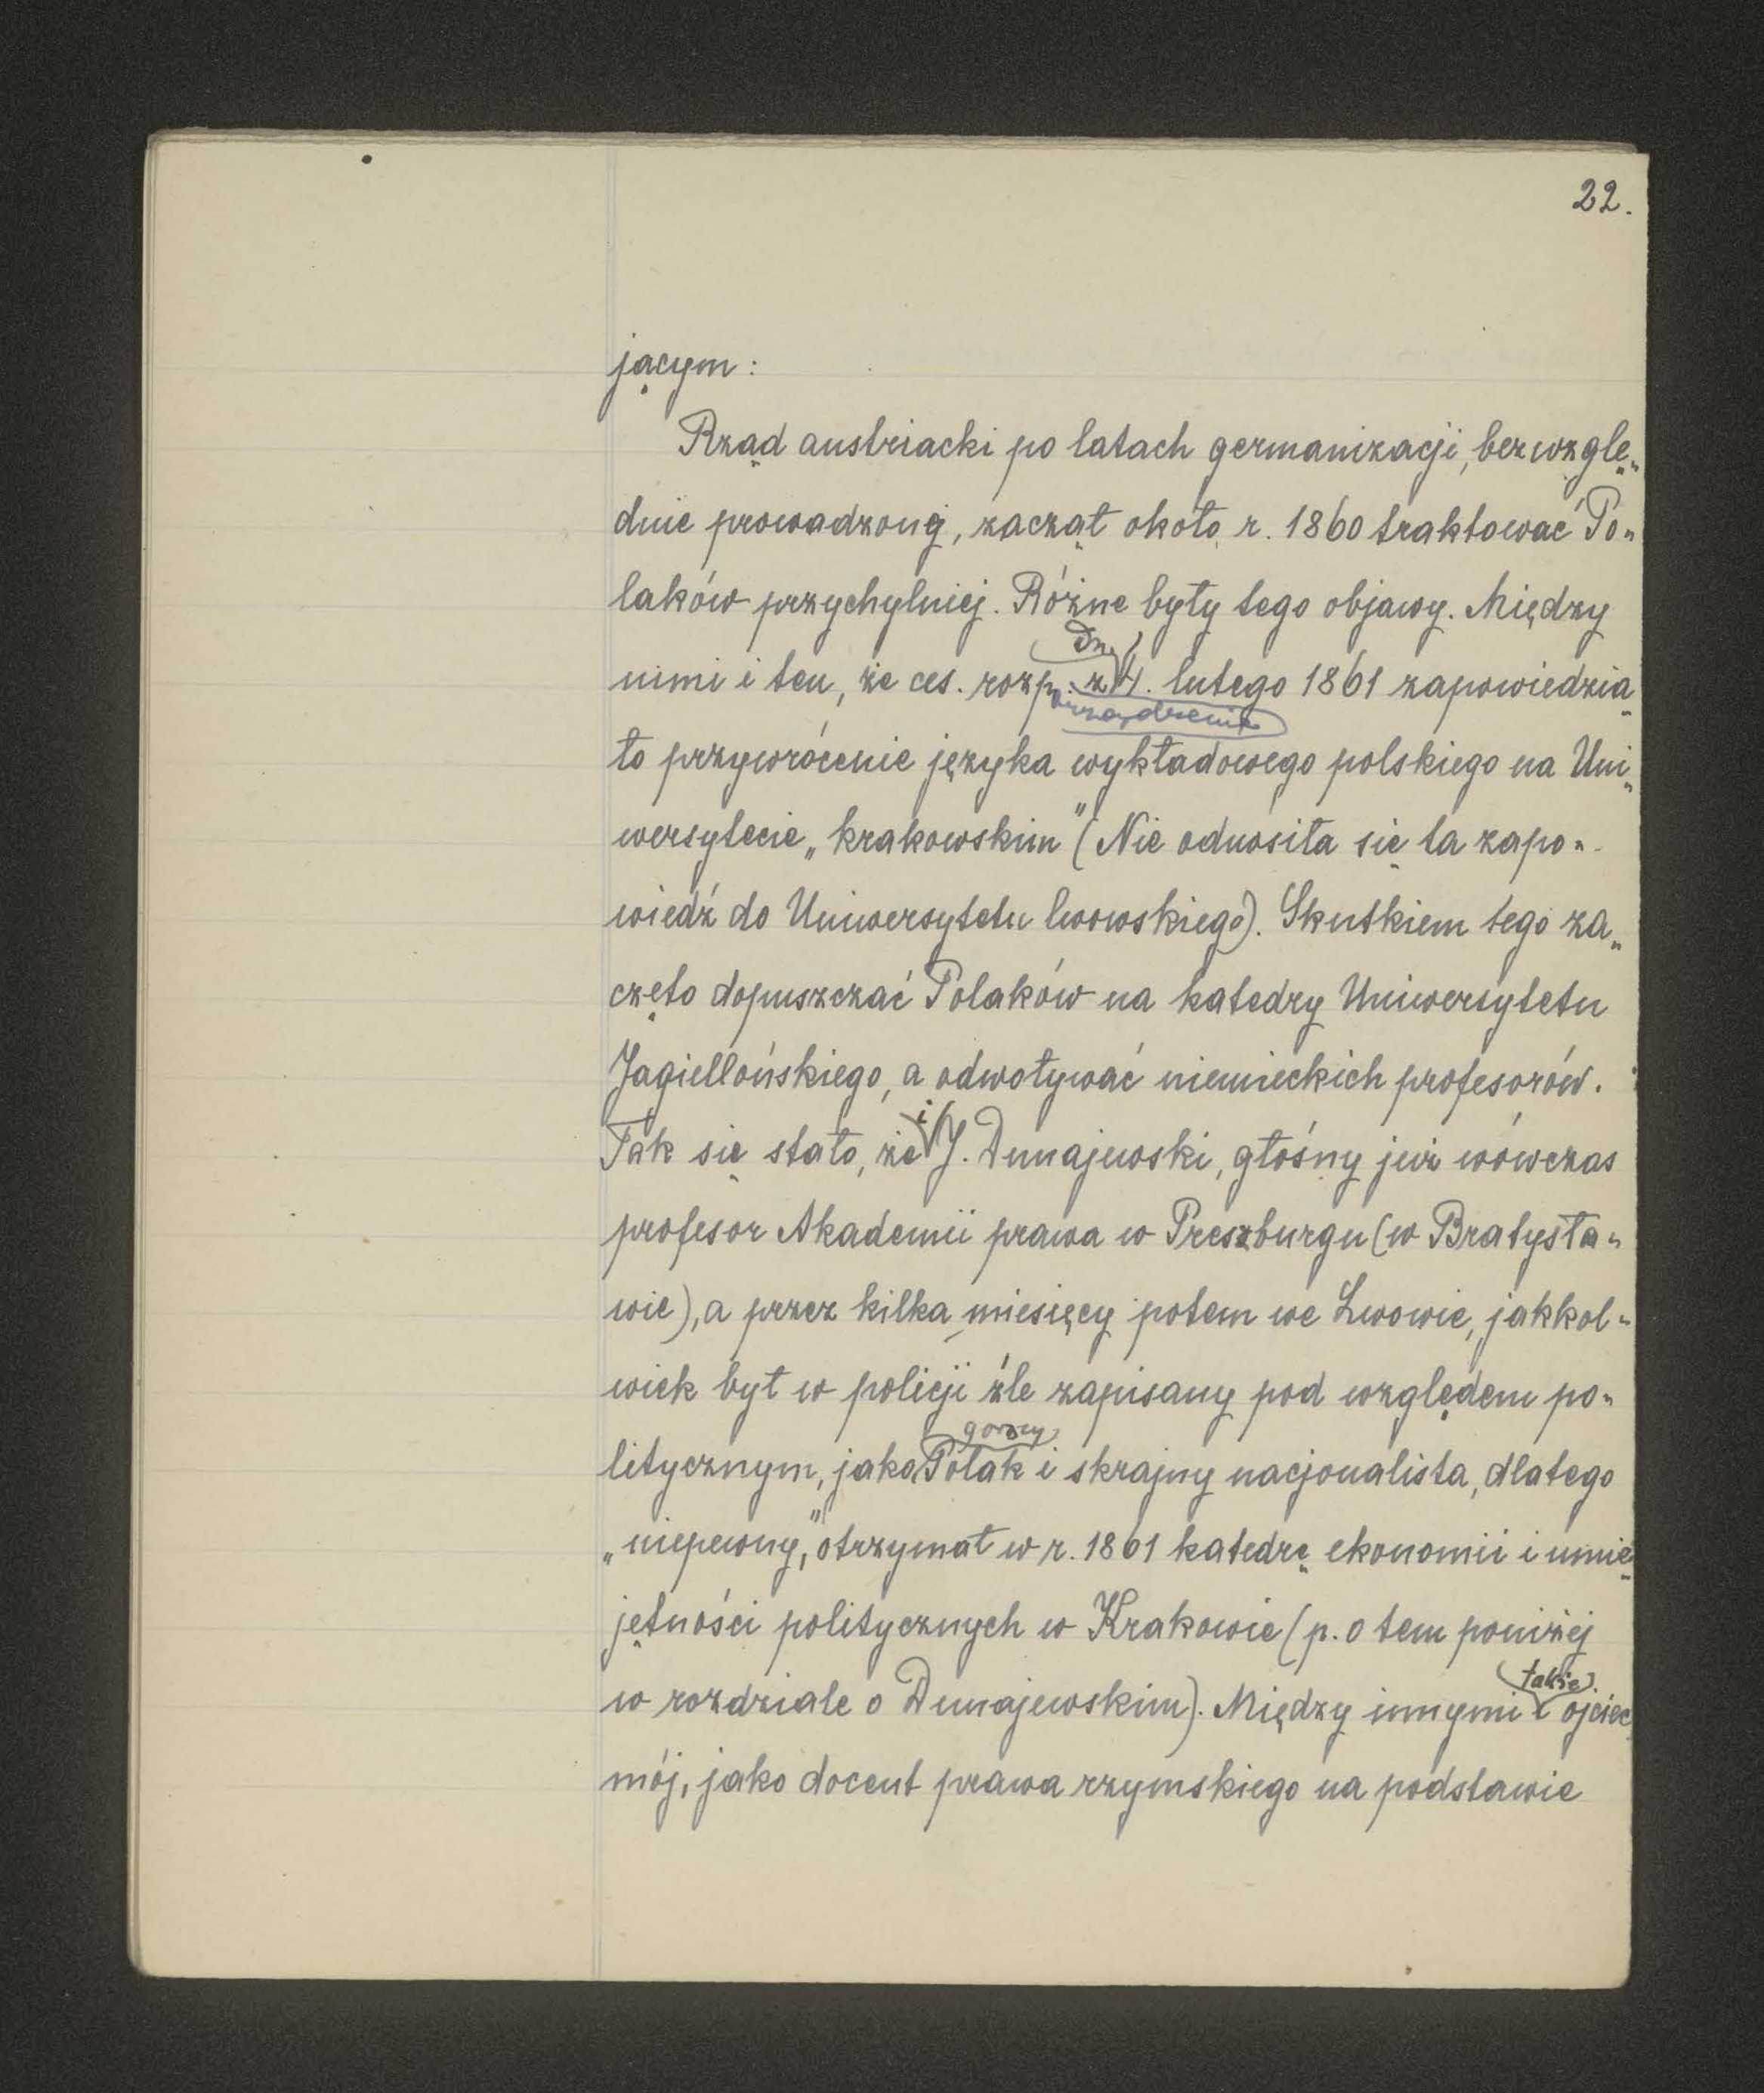 22.
jącym:
Rząd austriacki po latach germanizacji, bezwzglę„
dnie prowadzonej, zaczął około r. 1860 traktować Po„
laków przychylniej. Różne były tego objawy. Między
nimi i ten, że ces. rozp. z dn. 4. lutego 1861 zapowiedzia„
orządzenie
ło przywrócenie języka wykładowego polskiego na Uni„
wersytecie „krakowskim" (Nie odnosiła się ta zapo„
wiedź do Uniwersytetu lwowskiego). Skutkiem tego za„
częto dopuszczać Polaków na katedry Uniwersytetu
Jagiellońskiego, a odwoływać niemieckich profesorów.
Tak się stało, że i J. Dunajewski, głośny już wówczas
profesor Akademii prawa w Preszburgu (w Bratysła„
wie), a przez kilka miesięcy potem we Lwowie, jakkol„
wiek był w policji źle zapisany pod względem po„
litycznym, jako gorący Polak i skrajny nacjonalista, dlatego
„niepewny," otrzymał w r. 1861 katedrę ekonomii i umie„
jętności politycznych w Krakowie (p. o tem poniżej
w rozdziale o Dunajewskim). Między innymi także i ojciec
mój, jako docent prawa rzymskiego na podstawie